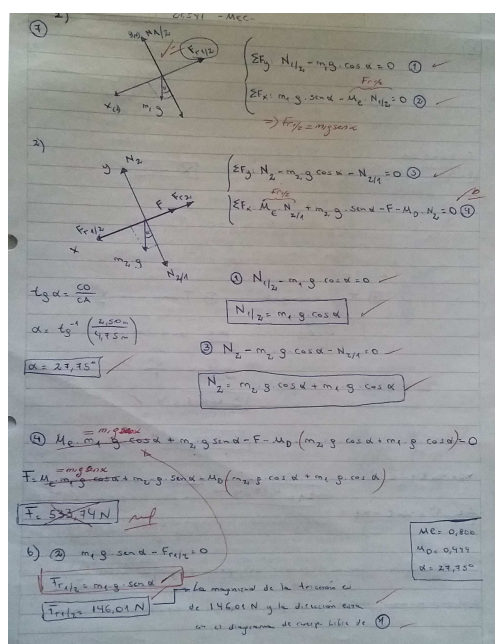 1)
- MEC -
①
N1/2
Fr1/2
x(+)
m1 g
ΣFy: N1/2 - m1 g · cos α = 0 ①
Fr1/2
ΣFx: m1 g · sen α - Me N1/2 = 0 ②
=> Fr1/2 = m1 g sen α
2)
y
N2
F
Fr2
Fr1/2
x
m2 g
N2/1
ΣFy: N2 - m2 g cos α - N2/1 = 0 ③
Fr1/2
ΣFx: Me N2/1 + m2 · g · sen α - F - MD · N2 = 0 ④
tg α = CO/CA
α = tg⁻¹ (2,50m/4,75m)
α = 27,75°
① N1/2 - m1 g cos α = 0
N1/2 = m1 g · cos α
③ N2 - m2 g · cos α - N2/1 = 0
N2 = m2 g cos α + m1 g · cos α
= m1 g sen α
④ Me · m1 g cos α + m2 · g sen α - F - MD · (m2 · g cos α + m1 · g · cos α) = 0
= m1 g sen α
F = Me · m1 g cos α + m2 · g · sen α - MD (m2 · g cos α + m1 · g · cos α)
F = 533,74 N
b) ② m1 g · sen α - Fr1/2 = 0
Fr1/2 = m1 g · sen α
Fr1/2 = 146,01 N
La magnitud de la fricción es
de 146,01 N y la dirección esta
en el diagrama de cuerpo libre de
Me = 0,800
MD = 0,444
α = 27,75°